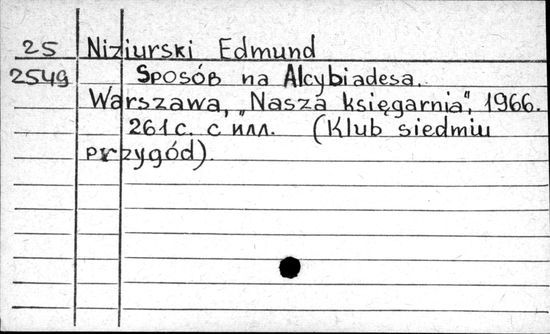 25 Niziurski Edmund
2549 Sposób na Alcybiadesa.
Warszawa, „Nasza księgarnia", 1966.
261 с. с илл. (Klub siedmiu
przygód).